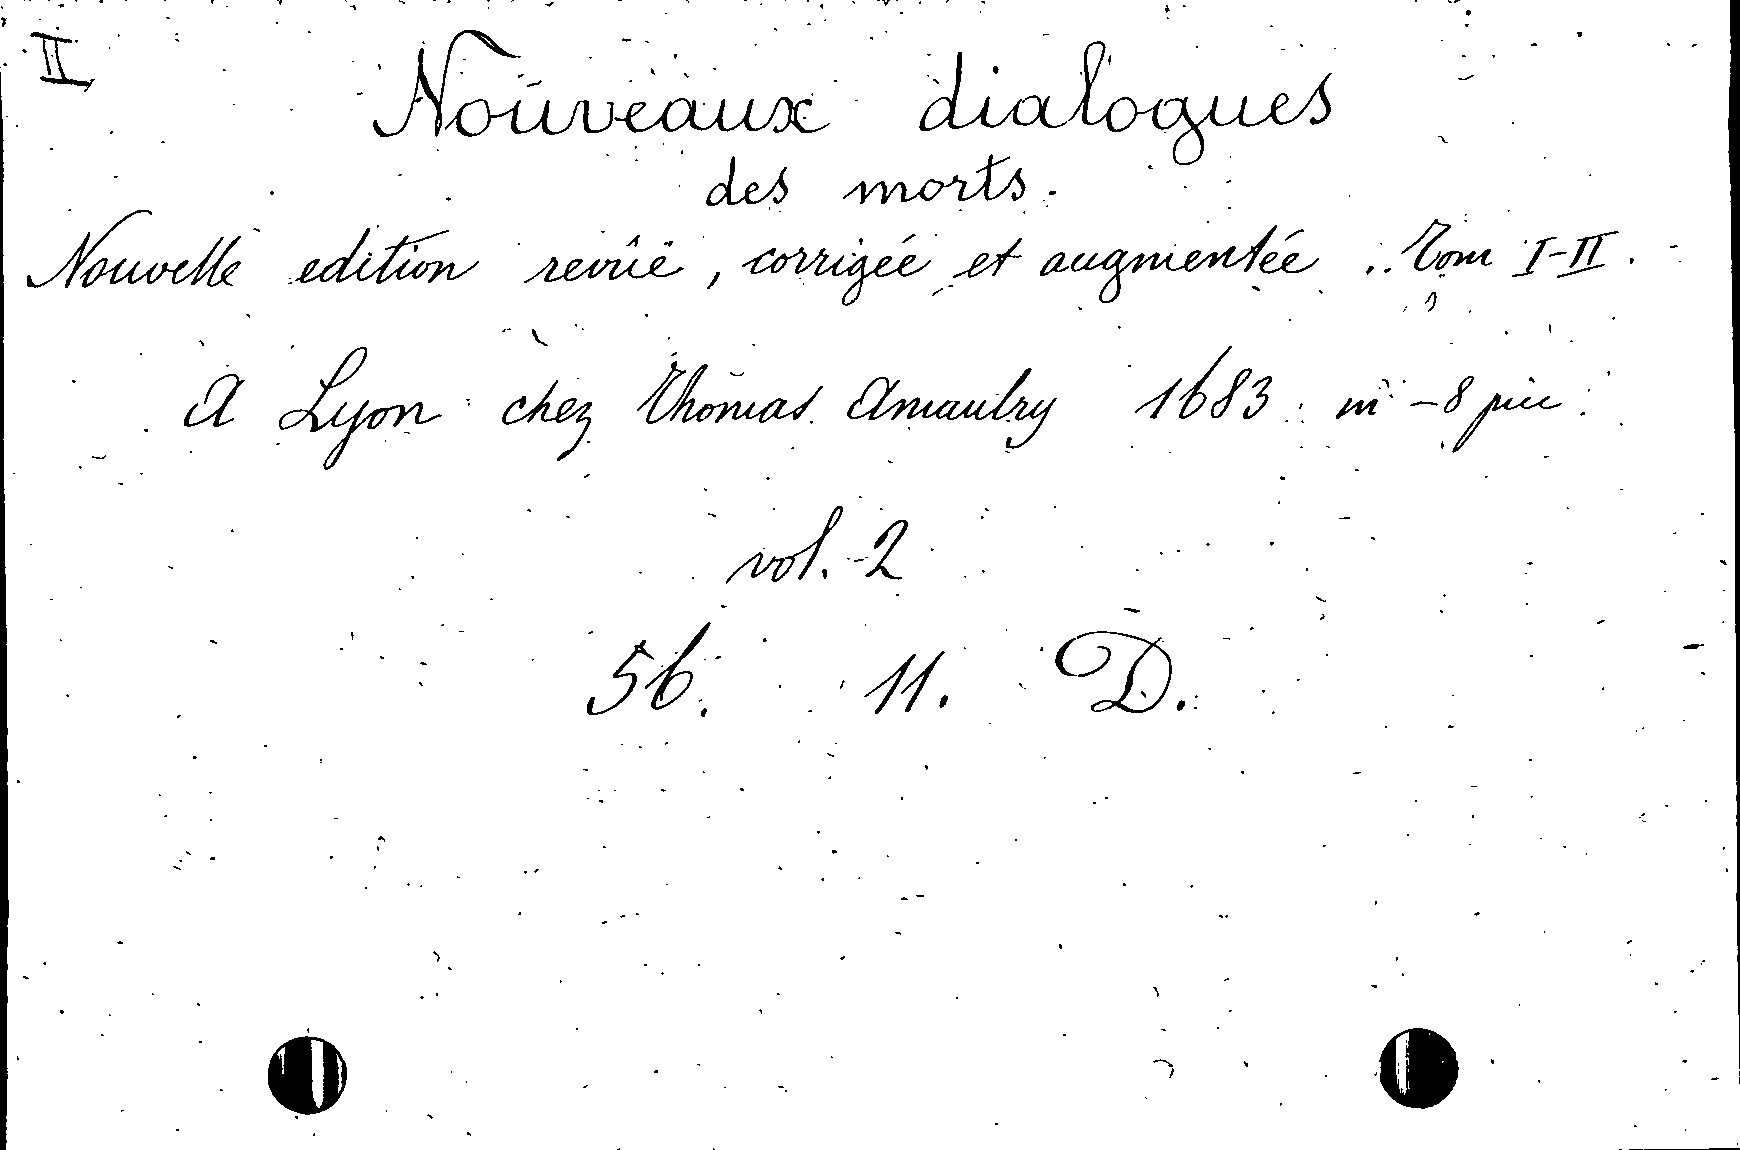 II
Nouveaux dialogues
des morts.
Nouvelle edition revûë, corrigée et augmentée .. Tom I-II.
A Lyon chez Thomas Amaulry 1683 in-8 picc
vol. 2
56. 11. D.